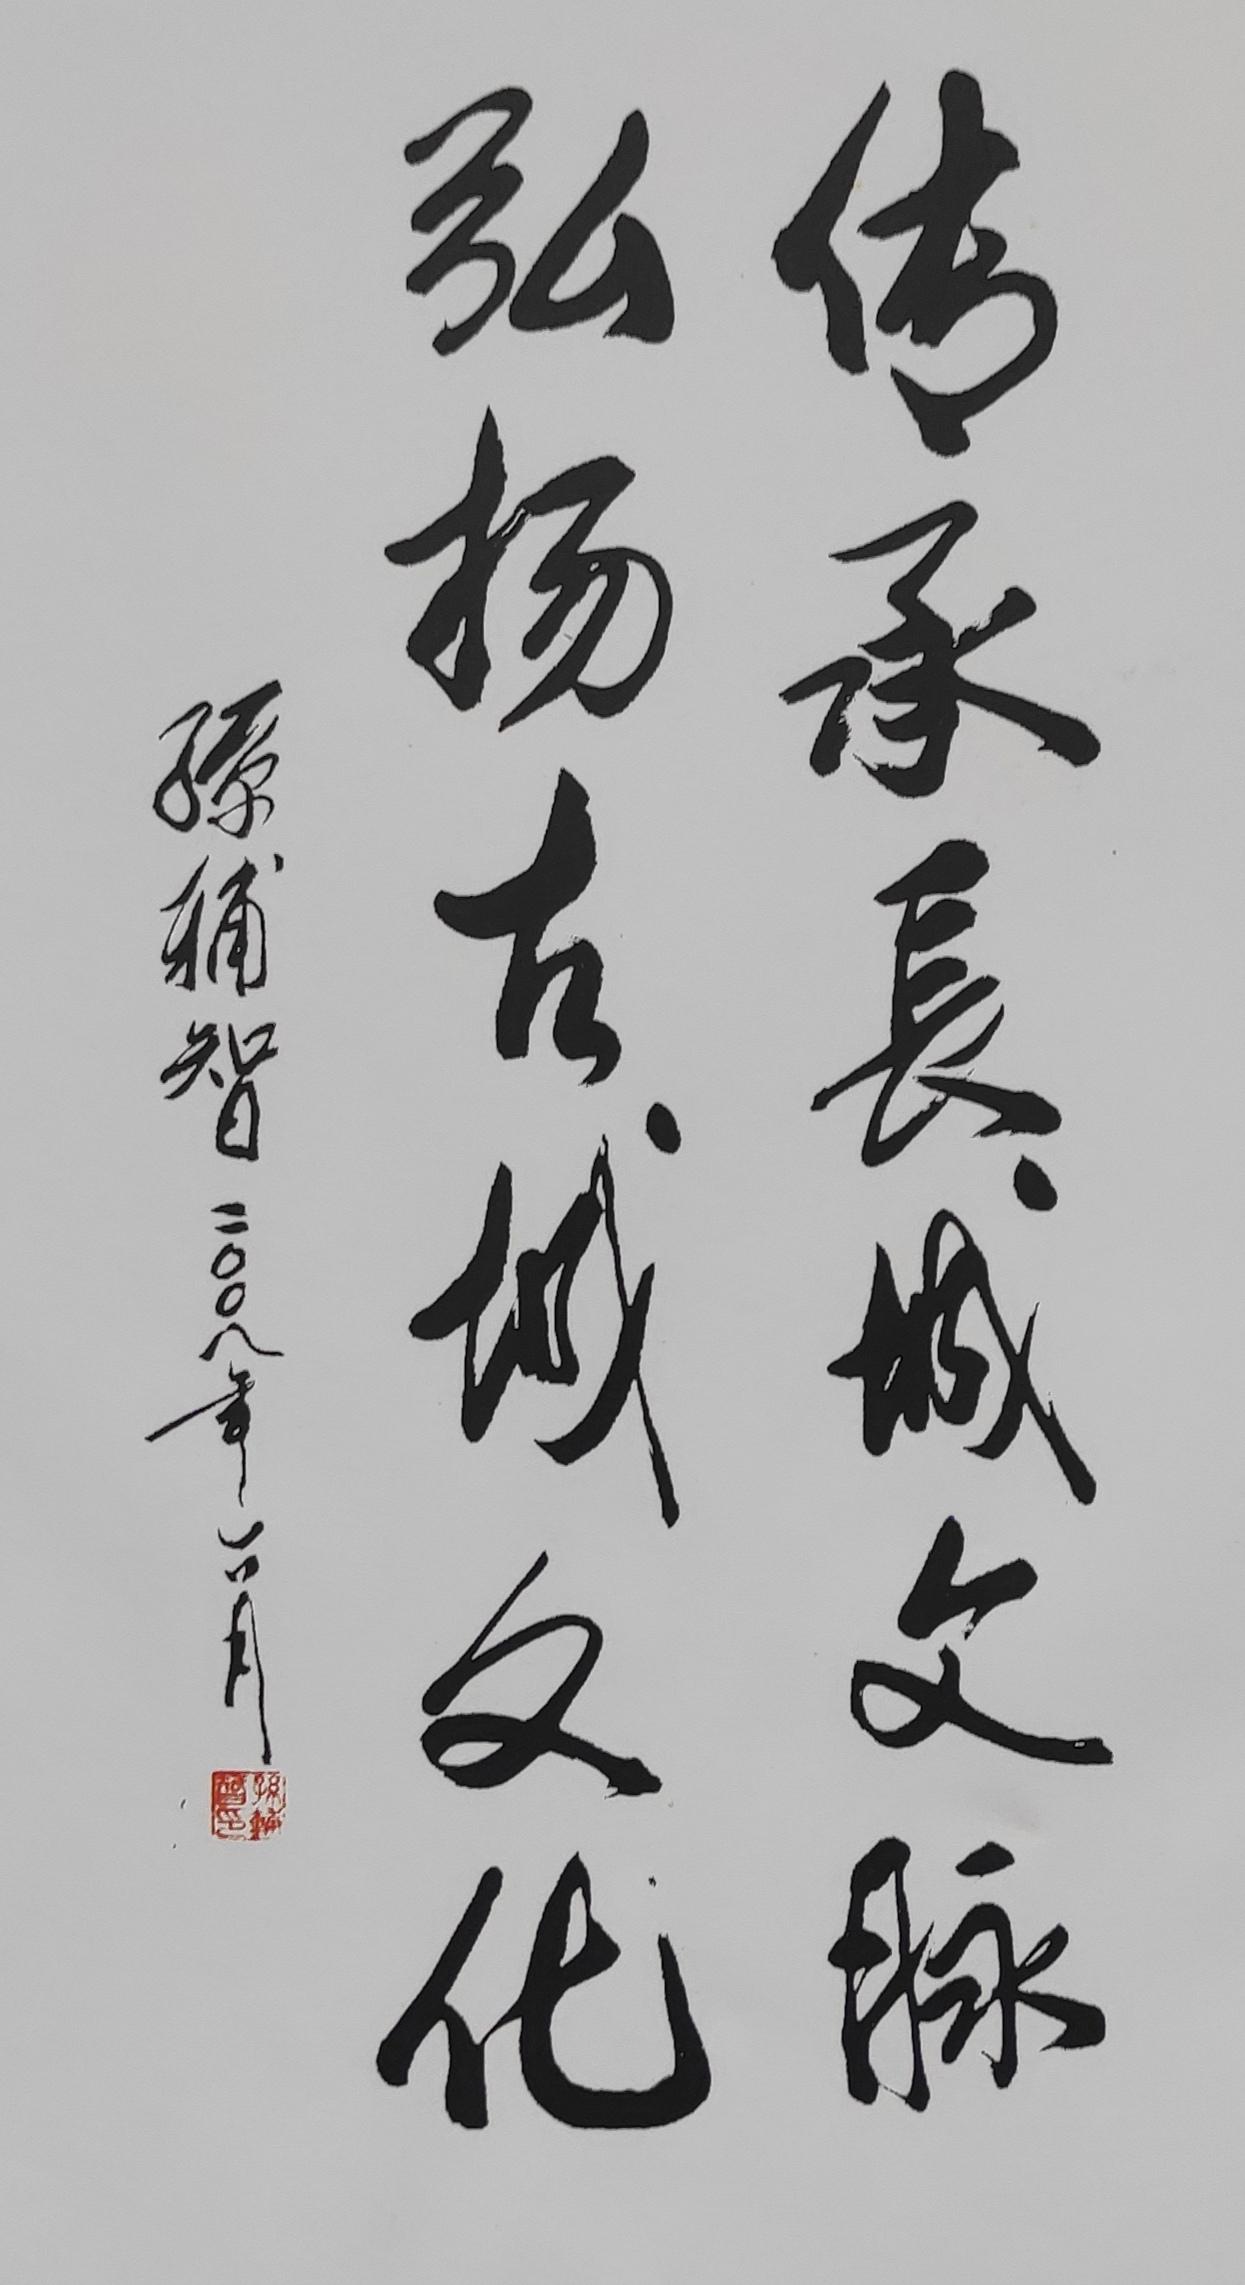 传承長城文脉
弘扬古城文化
孫補智二〇〇八年六月
孫輔智印